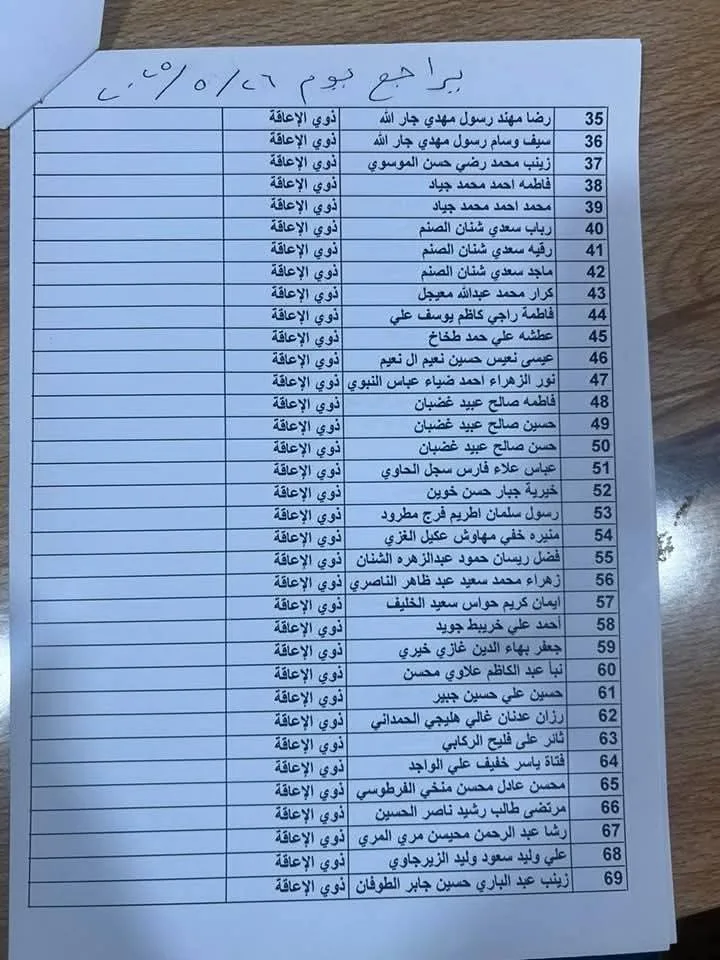 يراجع يوم ٢٦/ ٥ /٢٠٢٥
35 رضا مهند رسول مهدي جار الله ذوي الإعاقة
36 سيف وسام رسول مهدي جار الله ذوي الإعاقة
37 زينب محمد رضي حسن الموسوي ذوي الإعاقة
38 فاطمه احمد محمد جياد ذوي الإعاقة
39 محمد احمد محمد جياد ذوي الإعاقة
40 رباب سعدي شنان الصنم ذوي الإعاقة
41 رقيه سعدي شنان الصنم ذوي الإعاقة
42 ماجد سعدي شنان الصنم ذوي الإعاقة
43 كرار محمد عبدالله معيجل ذوي الإعاقة
44 فاطمة راجي كاظم يوسف علي ذوي الإعاقة
45 عطشه علي حمد طخاخ ذوي الإعاقة
46 عيسى نعيس حسين نعيم ال نعيم ذوي الإعاقة
47 نور الزهراء احمد ضياء عباس النبوي ذوي الإعاقة
48 فاطمه صالح عبيد غضبان ذوي الإعاقة
49 حسين صالح عبيد غضبان ذوي الإعاقة
50 حسن صالح عبيد غضبان ذوي الإعاقة
51 عباس علاء فارس سجل الحاوي ذوي الإعاقة
52 خيرية جبار حسن خوين ذوي الإعاقة
53 رسول سلمان اطريم فرج مطرود ذوي الإعاقة
54 منيره خفي مهاوش عكيل الغزي ذوي الإعاقة
55 فضل ريسان حمود عبدالزهره الشنان ذوي الإعاقة
56 زهراء محمد سعيد عبد ظاهر الناصري ذوي الإعاقة
57 ايمان كريم حواس سعيد الخليف ذوي الإعاقة
58 أحمد علي خريبط جويد ذوي الإعاقة
59 جعفر بهاء الدين غازي خيري ذوي الإعاقة
60 نبأ عبد الكاظم علاوي محسن ذوي الإعاقة
61 حسين علي حسين جبير ذوي الإعاقة
62 رزان عدنان غالي هليجي الحمداني ذوي الإعاقة
63 ثائر على فليح الركابي ذوي الإعاقة
64 فتاة ياسر خفيف علي الواجد ذوي الإعاقة
65 محسن عادل محسن منخي الفرطوسي ذوي الإعاقة
66 مرتضى طالب رشيد ناصر الحسين ذوي الإعاقة
67 رشا عبد الرحمن محيسن مري المري ذوي الإعاقة
68 علي وليد سعود وليد الزيرجاوي ذوي الإعاقة
69 زينب عبد الباري حسين جابر الطوفان ذوي الإعاقة